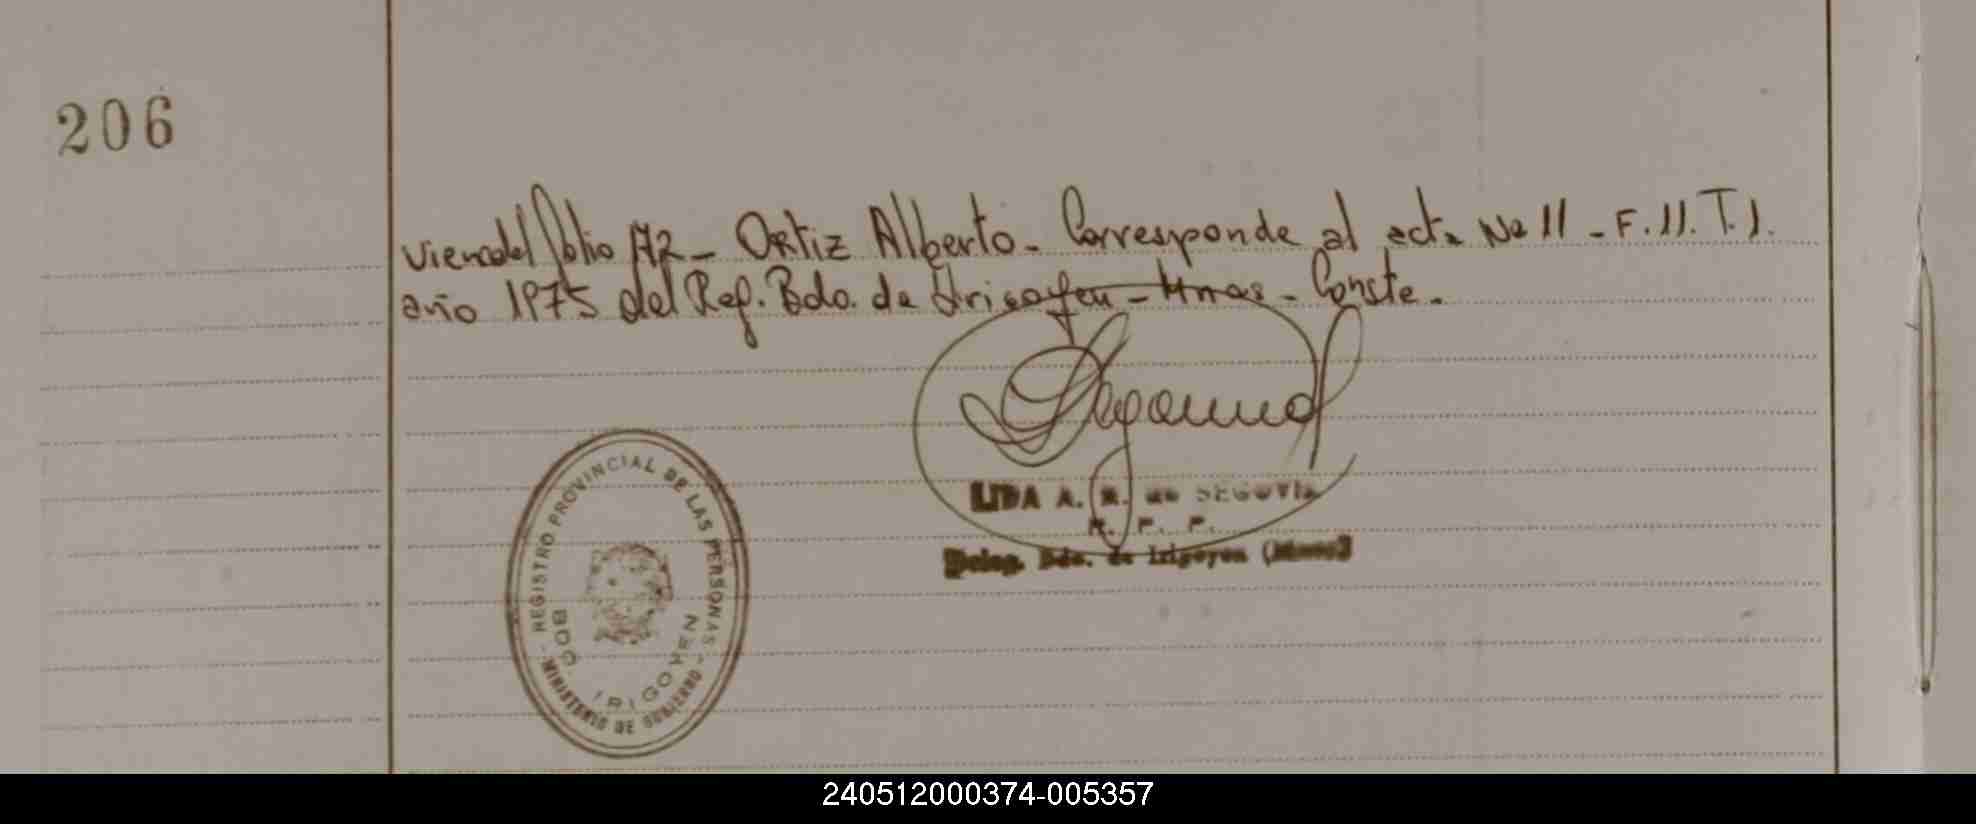 206
viene del folio 172 - Ortiz Alberto - Corresponde al acta No 11 - F. 11. T. 1.
año 1975 del Reg. Bdo. de Irigoyen - Mnes - Conste.
LIDA A. R. de SEGOVIA
R. P. P.
Deleg. Bdo. de Irigoyen (Mnes)
REGISTRO PROVINCIAL DE LAS PERSONAS - MINISTERIO DE GOBIERNO -
BDO. IRIGOYEN
240512000374-005357